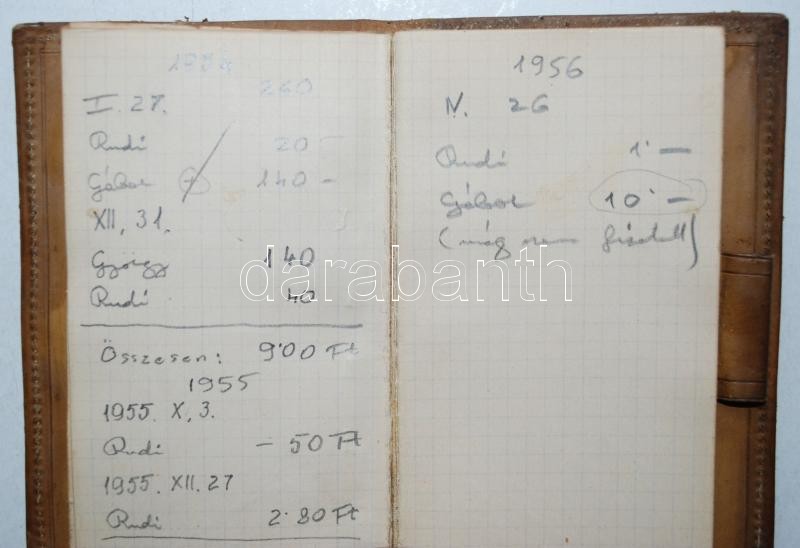 1954
260
I. 27.
Rudi 20 -
Gábor + 140 -
XII, 31.
György 1 40
Rudi 40
Összesen: 9'00 Ft
1955
1955. X, 3.
Rudi - 50 Ft
1955. XII. 27
Rudi 2.80 Ft
1956
IV. 26
Rudi 1' —
Gábor 10' —
(még nem fizetett)
darabanth